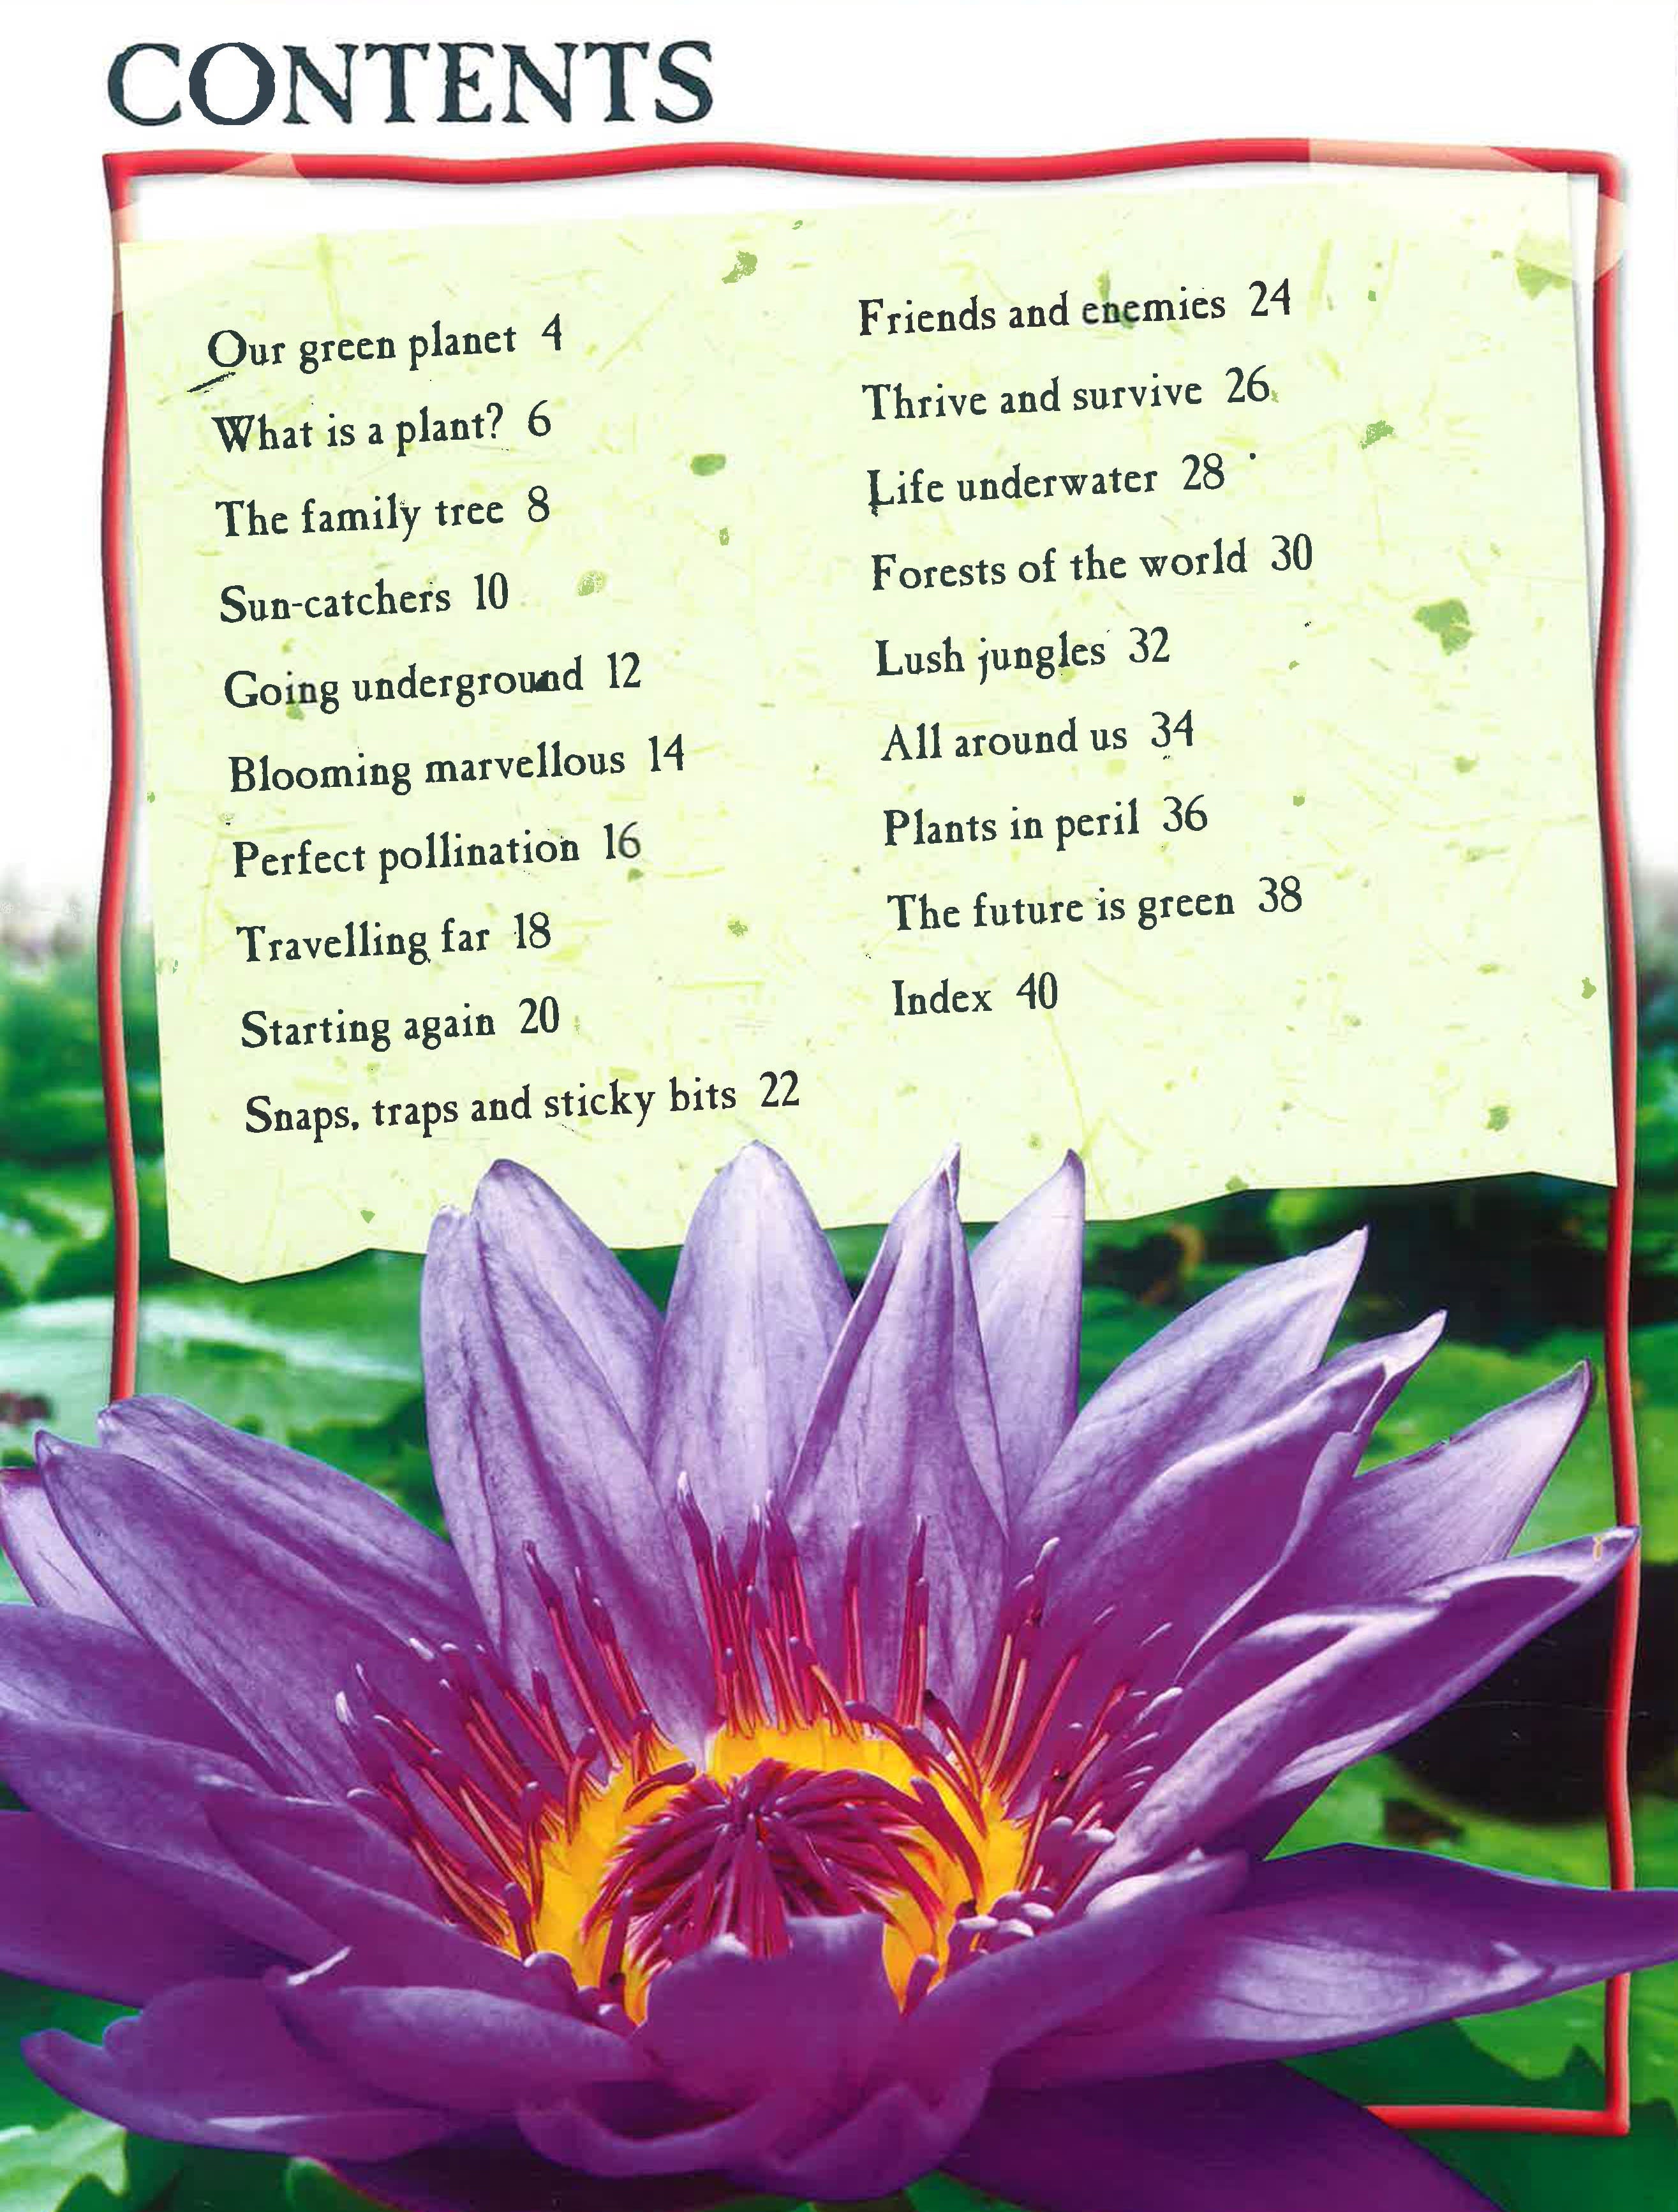 CONTENTS
Our green planet 4
What is a plant? 6
The family tree 8
Sun-catchers 10
Going underground 12
Blooming marvellous 14
Perfect pollination 16
Travelling far 18
Starting again 20
Snaps, traps and sticky bits 22
Friends and enemies 24
Thrive and survive 26
Life underwater 28
Forests of the world 30
Lush jungles 32
All around us 34
Plants in peril 36
The future is green 38
Index 40